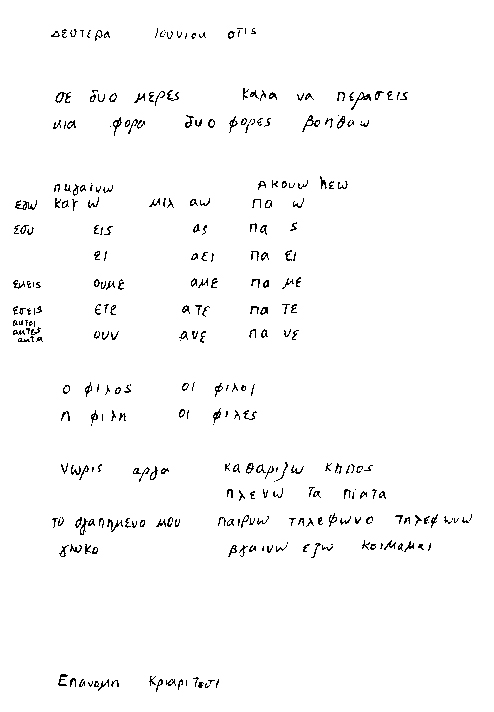 Δευτερα Ιουνιου στις
σε δυο μερες καλα να περασεις
μια φορα δυο φορες βοηθαω
πηγαινω Ακουω λεω
εγω καν ω μιλ αω πα ω
εσυ εις ας πα ς
ει αει πα ει
εμεις ουμε αμε πα με
εσεις ετε ατε πα τε
αυτοι
αυτες ουν ανε πα νε
αυτα
ο φιλος οι φιλοι
η φιλη οι φιλες
νωρις αργα καθαριζω κηπος
πλενω τα πιατα
το αγαπημενο μου παιρνω τηλεφωνο τηλεφωνω
γλυκο βγαινω εξω κοιμαμαι
Επανομη